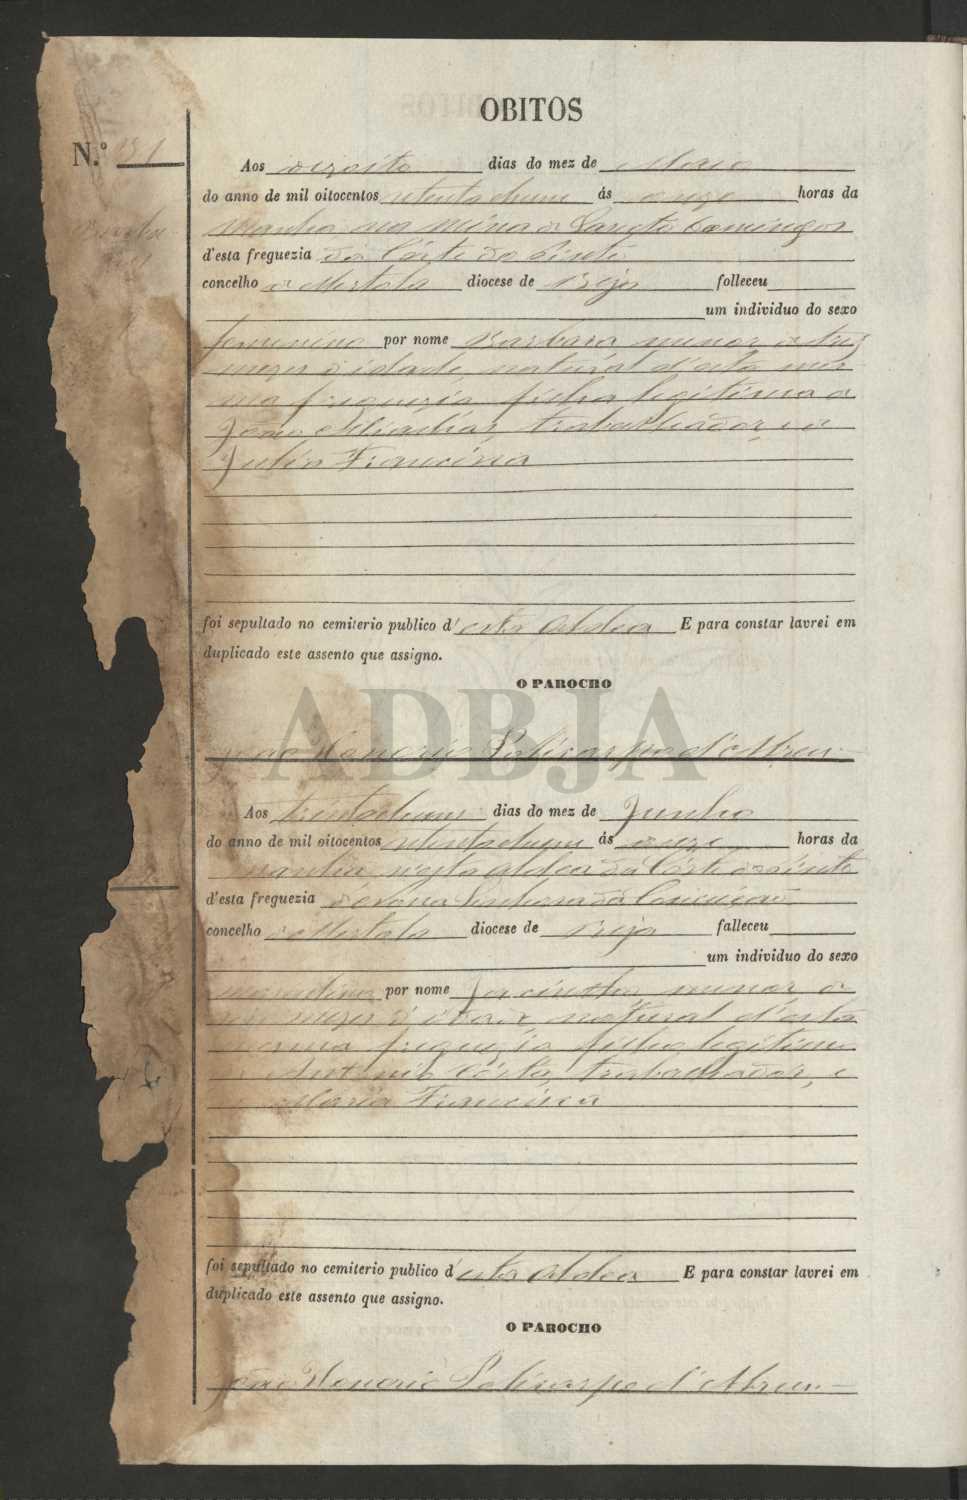 OBITOS
N.º
Aos dezoito dias do mez de Maio
do anno de mil oitocentos oitenta e hum ás onze horas da
manha na mina de Sancto Domingos
d'esta freguezia da Côrte do Pinto
concelho de Mertola diocese de Beja folleceu
um individuo do sexo
femenino por nome Barbara menor de tres
mezes d'idade, natural d'esta mes-
ma freguezia, filha legitima de
João, trabalhador, e de
Julia Francisca
foi sepultado no cemiterio publico d'esta Aldea E para constar lavrei em
duplicado este assento que assigno.
O PAROCHO
João Honorio Policarpo d'Abreu
ADBJA
Aos dias do mez de Junho
do anno de mil oitocentos oitenta e hum ás onze horas da
manha, n'esta aldea da Côrte do Pinto
d'esta freguezia de Nossa Senhora da Conceição
concelho de Mertola diocese de Beja falleceu
um individuo do sexo
masculino por nome Jacintho, menor de
mezes d'idade, natural d'esta
mesma freguezia, filho legitimo
de Antonio Costa, trabalhador, e
Maria Francisca
foi sepultado no cemiterio publico d'esta Aldea E para constar lavrei em
duplicado este assento que assigno.
O PAROCHO
João Honorio Policarpo d'Abreu